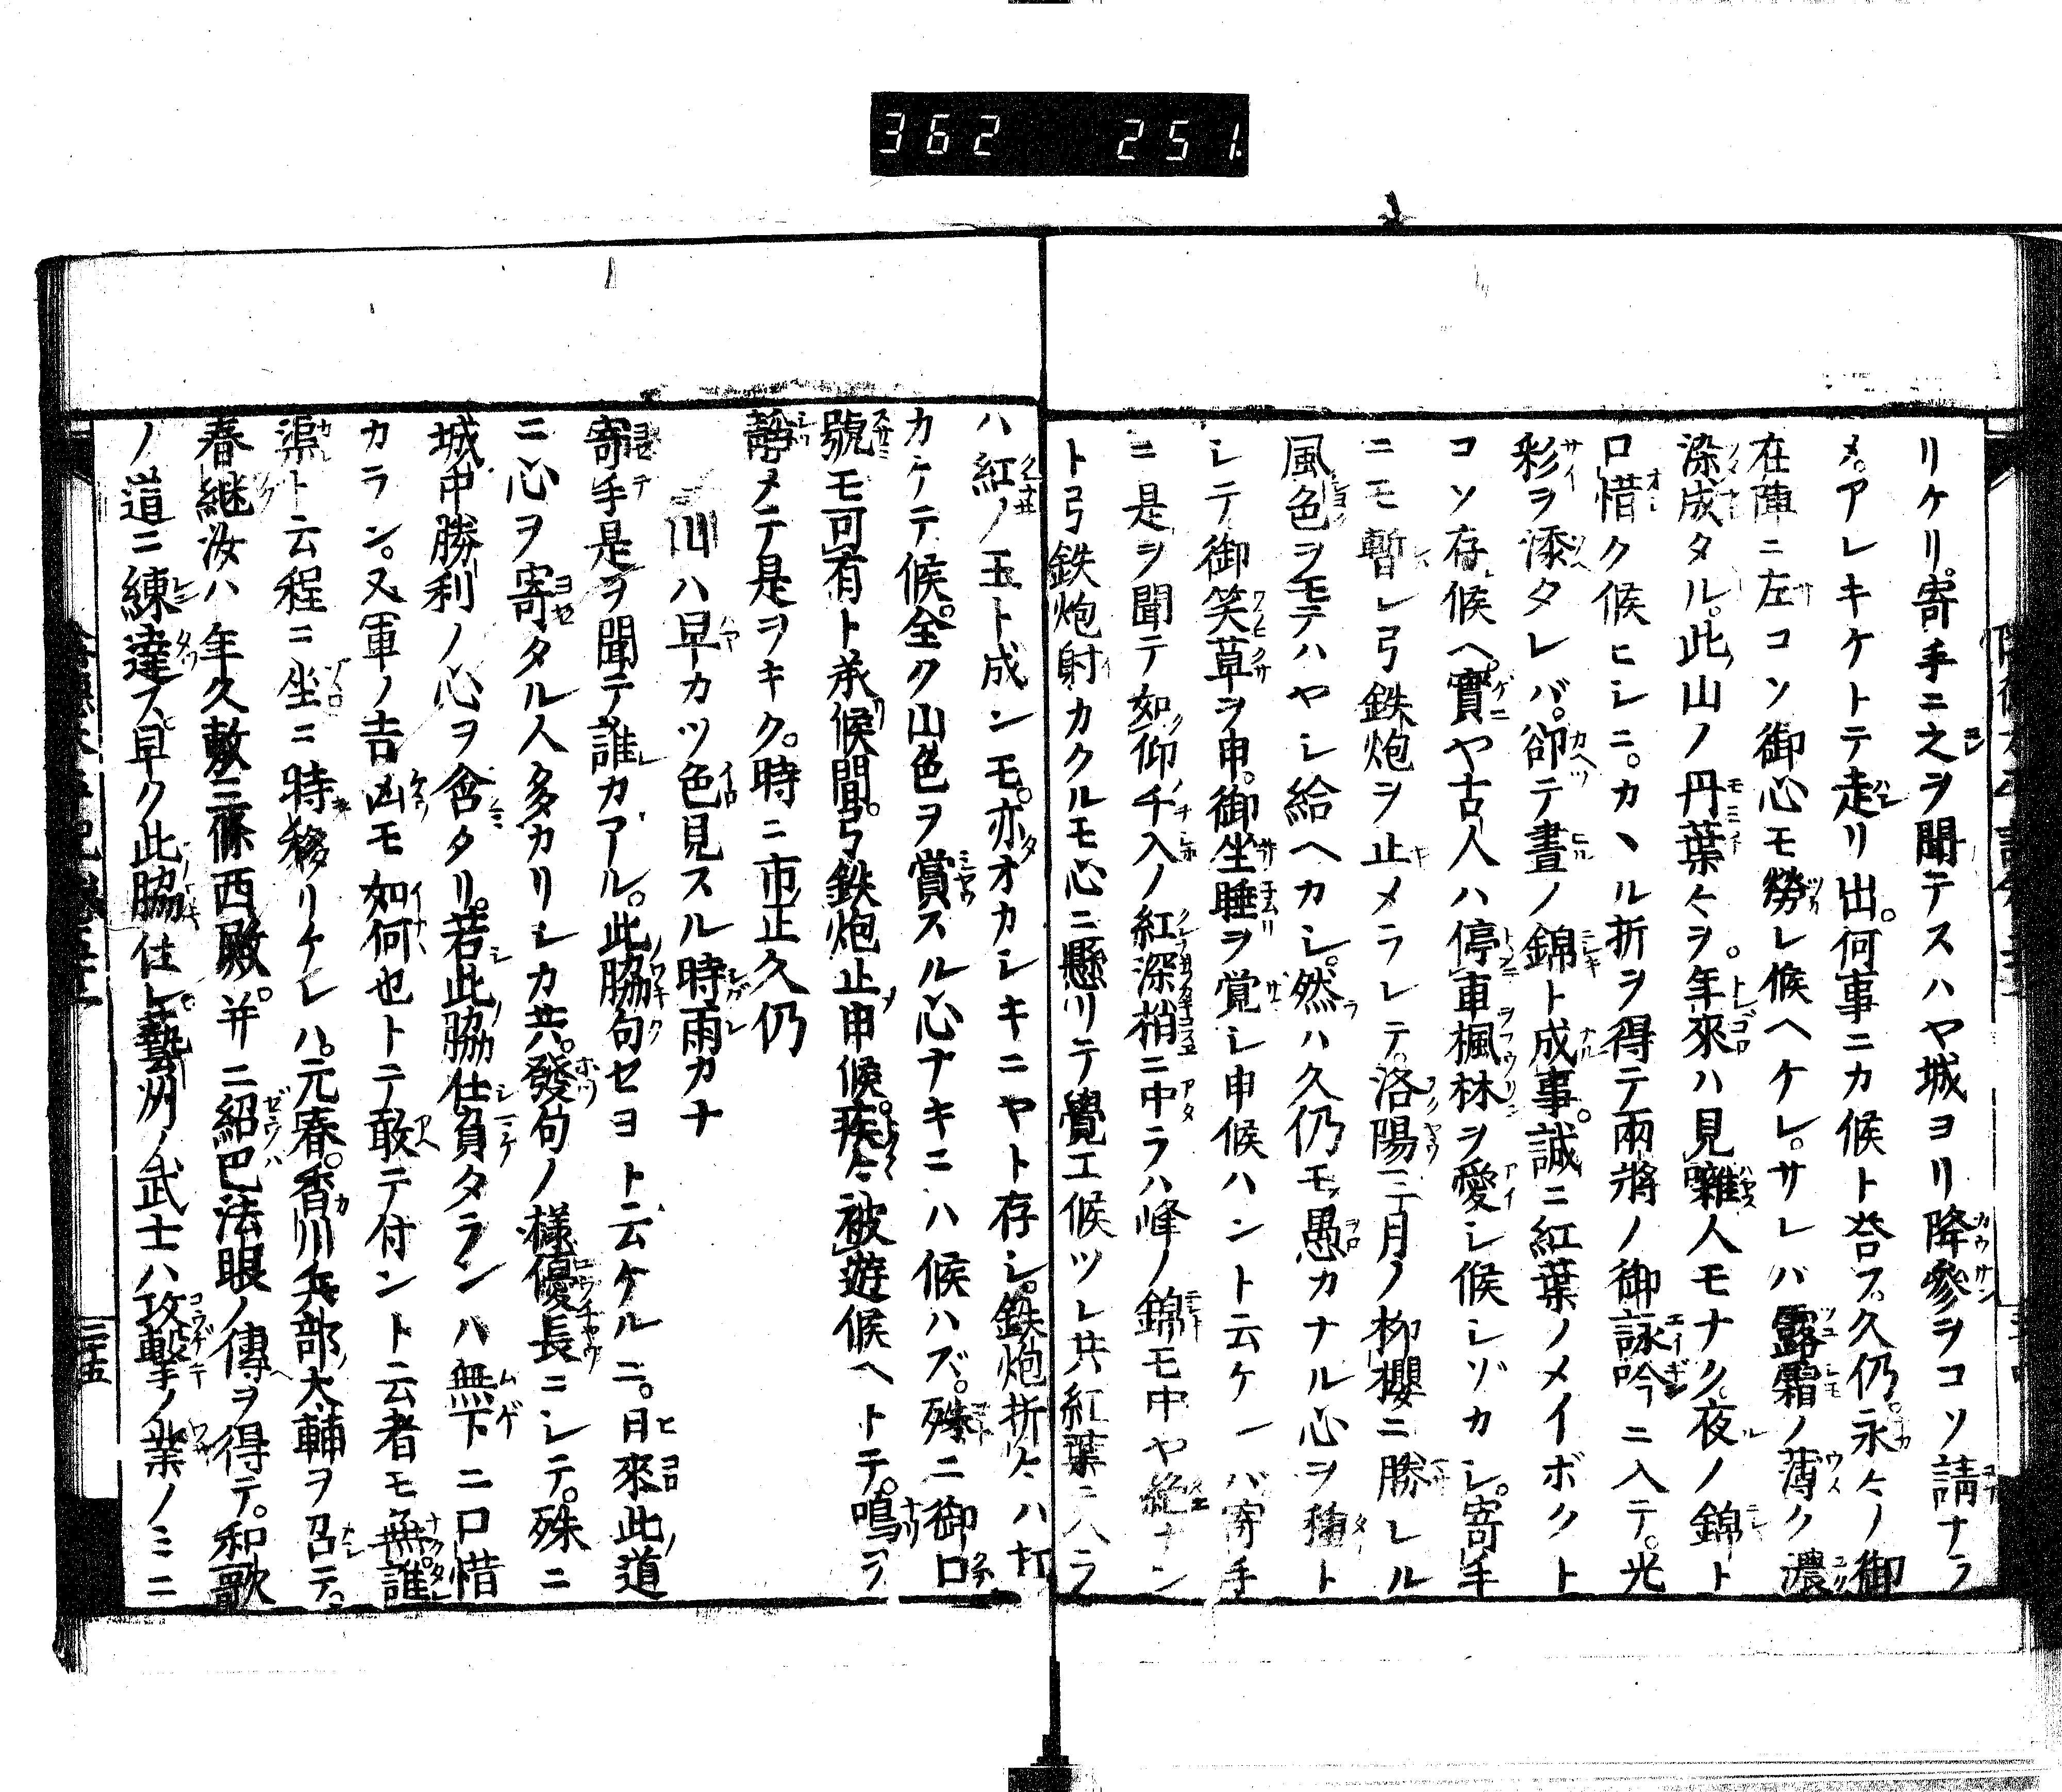 362 251
リケリ。寄手ニ之ヲ聞テスハヤ城ヨリ降參ヲコソ請ナラ
メ。アレキケトテ走リ出。何事ニカ候ト答フ。久仍。永々ノ御
在陣ニ左コソ御心モ勞レ候ヘケレ。サレバ露霜ノ薄ク濃
染成タル。此山ノ丹葉々ヲ。年來ハ見囃人モナク。夜ノ錦ト
口惜ク候ヒシニ。カヽル折ヲ得テ兩將ノ御詠吟ニ入テ。光
彩ヲ添タレバ。卻テ晝ノ錦ト成事。誠ニ紅葉ノメイボクト
コソ存候ヘ。實ヤ古人ハ停車楓林ヲ愛シ候シゾカシ。寄手
ニモ暫シ弓鉄炮ヲ止メラレテ。洛陽三月ノ柳櫻ニ勝レル
風色ヲモテハヤシ給ヘカシ。然ハ久仍モ愚カナル心ヲ種ト
シテ御笑草ヲ申。御坐睡ヲ覚シ申候ハント云ケレバ寄手
ニ是ヲ聞テ如仰千入ノ紅深梢ニ中ラハ峰ノ錦モ中ヤ絶ナン
ト弓鉄炮射カクルモ心ニ懸リテ覺エ候ツレ共紅葉ニ入ラ
ハ紅ノ玉ト成ンモ。亦オカシキニヤト存シ。鉄炮折々ハ打
カケテ候。全ク山色ヲ賞スル心ナキニハ候ハズ。殊ニ御口
號モ可有ト承候間。弓鉄炮止申候。疾々被遊候ヘトテ。鳴ヲ
靜メテ是ヲキク。時ニ市正久仍
川ハ早カツ色見スル時雨カナ
寄手是ヲ聞テ誰カアル。此脇句セヨト云ケルニ。日來此道
ニ心ヲ寄タル人多カリシカ共。發句ノ樣優長ニシテ。殊ニ
城中勝利ノ心ヲ含タリ。若此脇仕負タランハ無下ニ口惜
カラン。又軍ノ吉凶モ如何也トテ敢テ付ント云者モ無誰
渠ト云程ニ坐ニ時移リケレハ。元春。香川兵部大輔ヲ召テ。
春継汝ハ年久敷三條西殿。并ニ紹巴法眼ノ傳ヲ得テ。和歌
ノ道ニ練達ス早ク此脇仕レ。藝州ノ武士ハ攻擊ノ業ノミニ
三十五